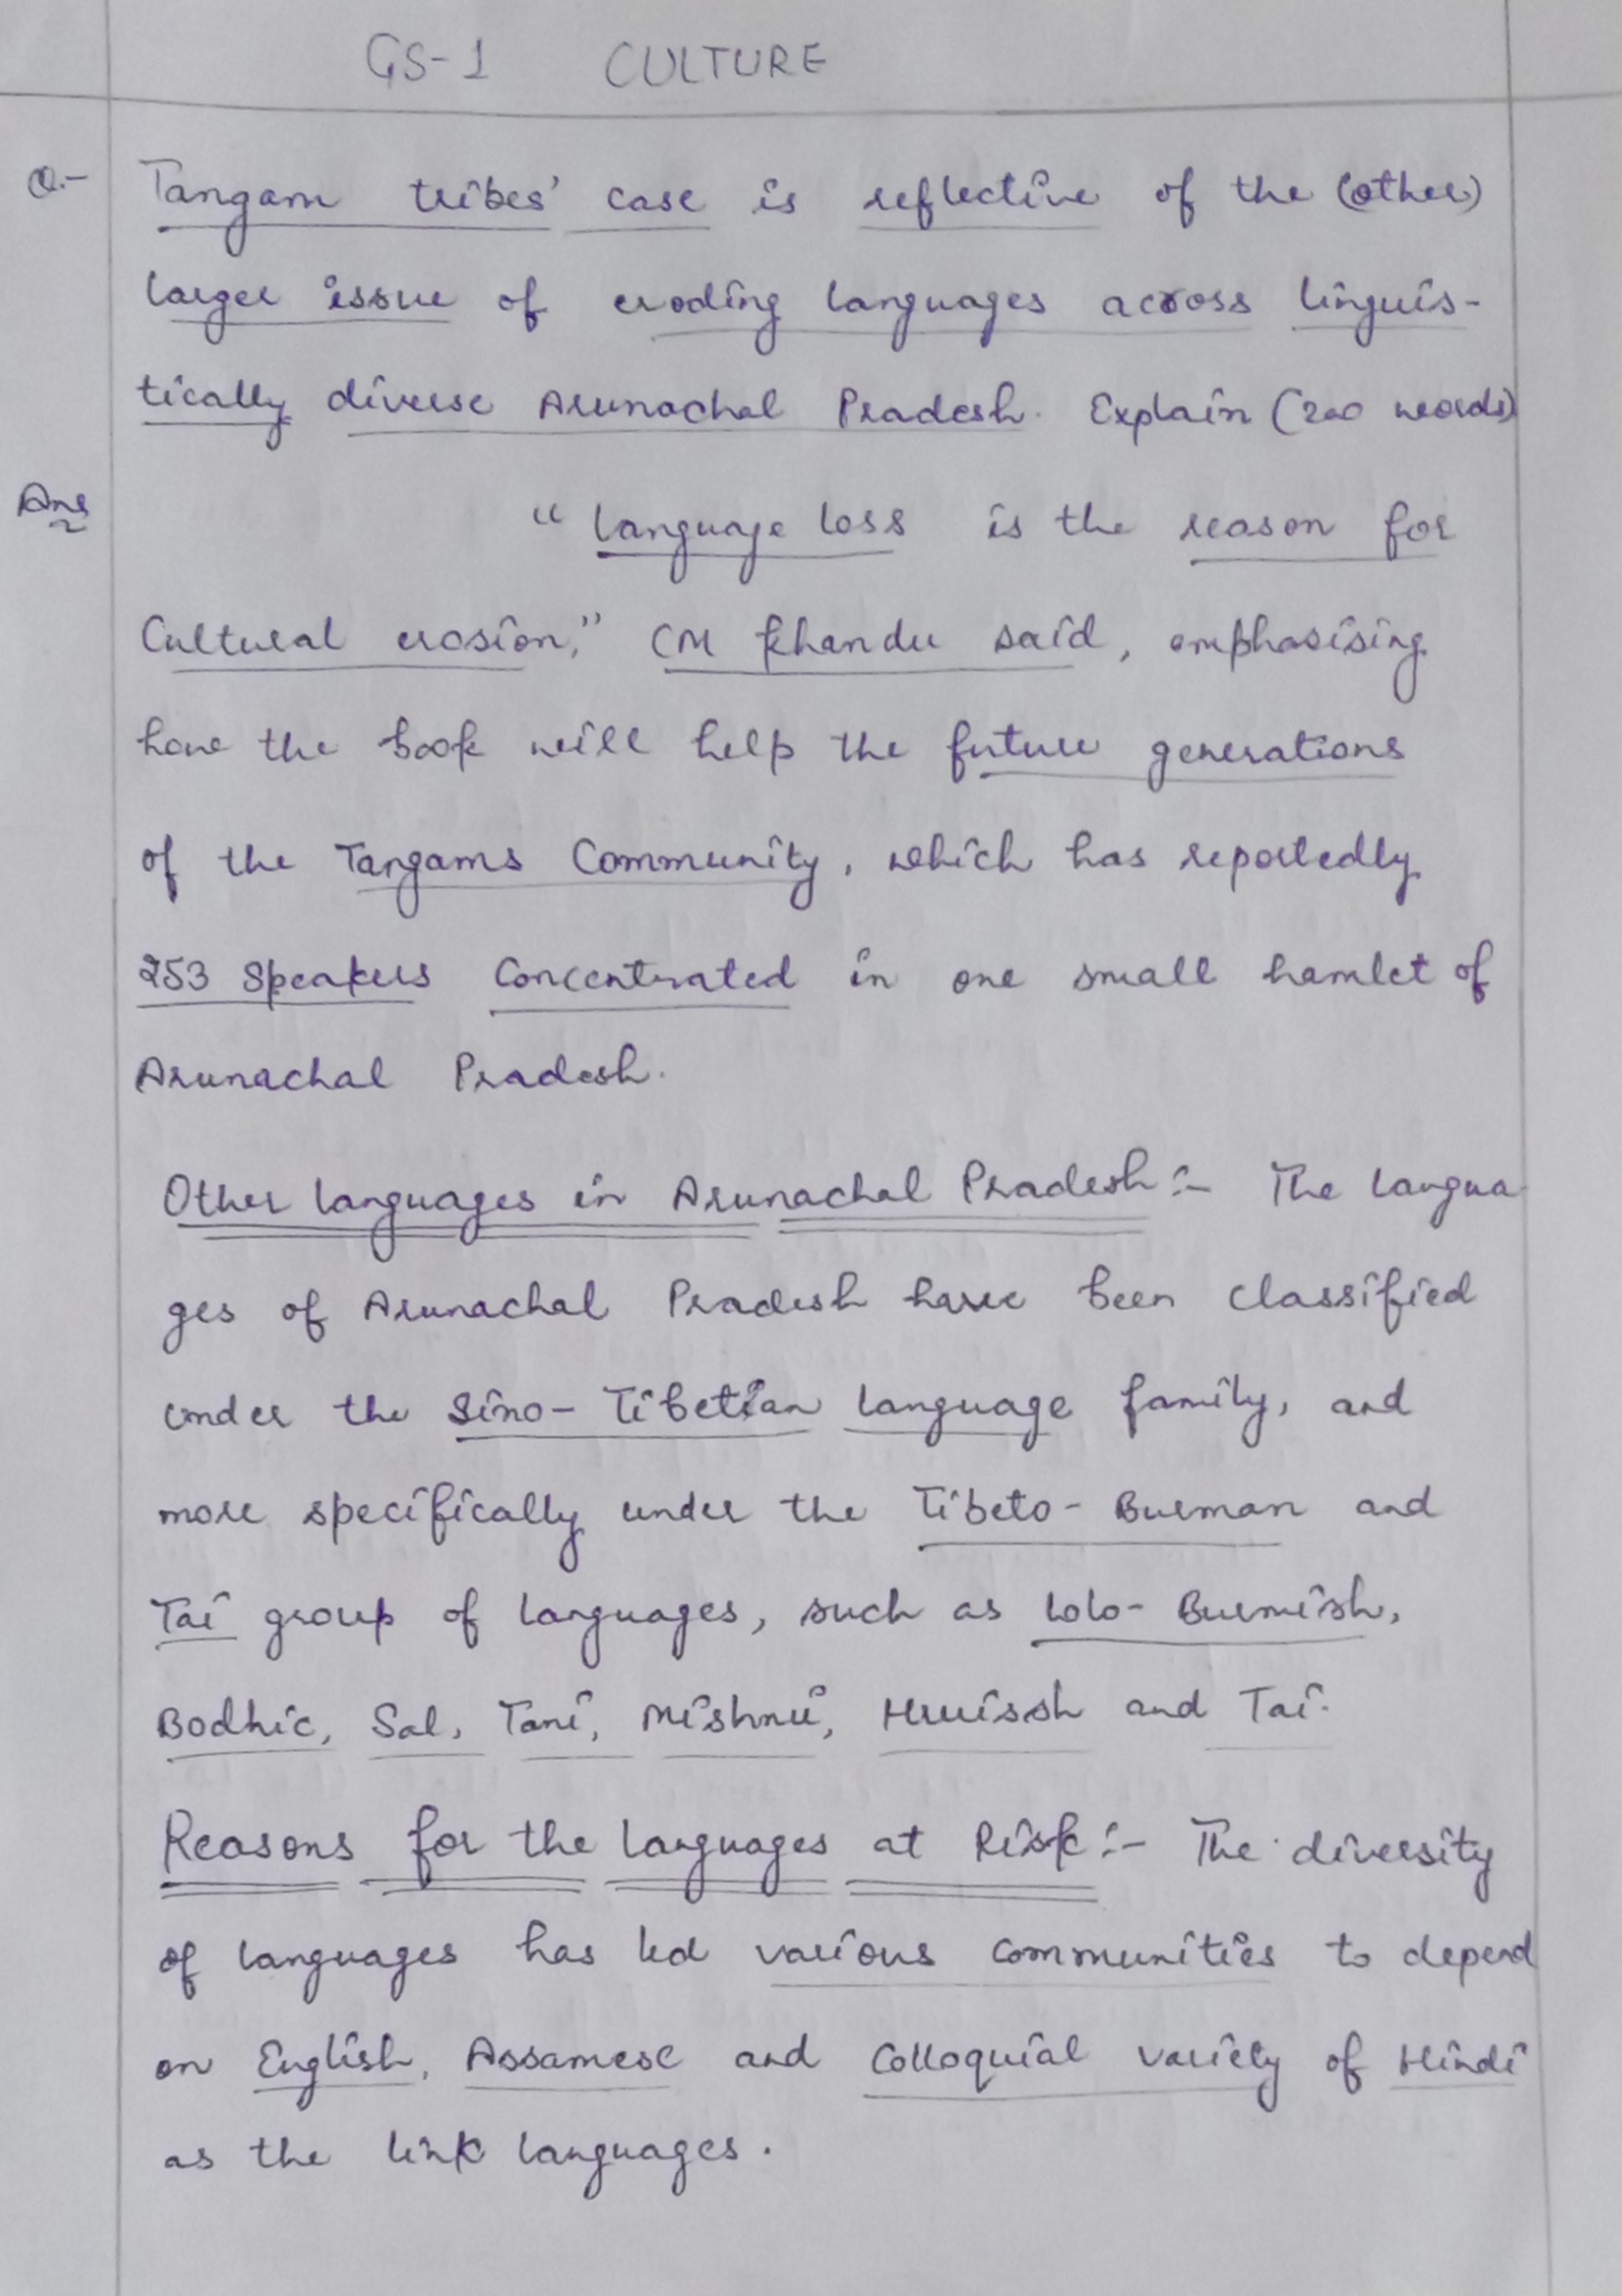 GS-1 CULTURE
Q.- Tangam tribes' case is reflective of the (other)
larger issue of eroding languages across linguis-
tically diverse Arunachal Pradesh. Explain (200 words)
Ans "Language loss is the reason for
Cultural erosion," CM Khandu said, emphasising
how the book will help the future generations
of the Tangams Community, which has reportedly
253 Speakers Concentrated in one small hamlet of
Arunachal Pradesh.
Other languages in Arunachal Pradesh :- The langua-
ges of Arunachal Pradesh have been classified
under the Sino-Tibetian language family, and
more specifically under the Tibeto-Burman and
Tai group of languages, such as Lolo-Burmish,
Bodhic, Sal, Tani, Mishmi, Hruissh and Tai.
Reasons for the languages at Risk :- The diversity
of languages has led various communities to depend
on English, Assamese and Colloquial variety of Hindi
as the link languages.